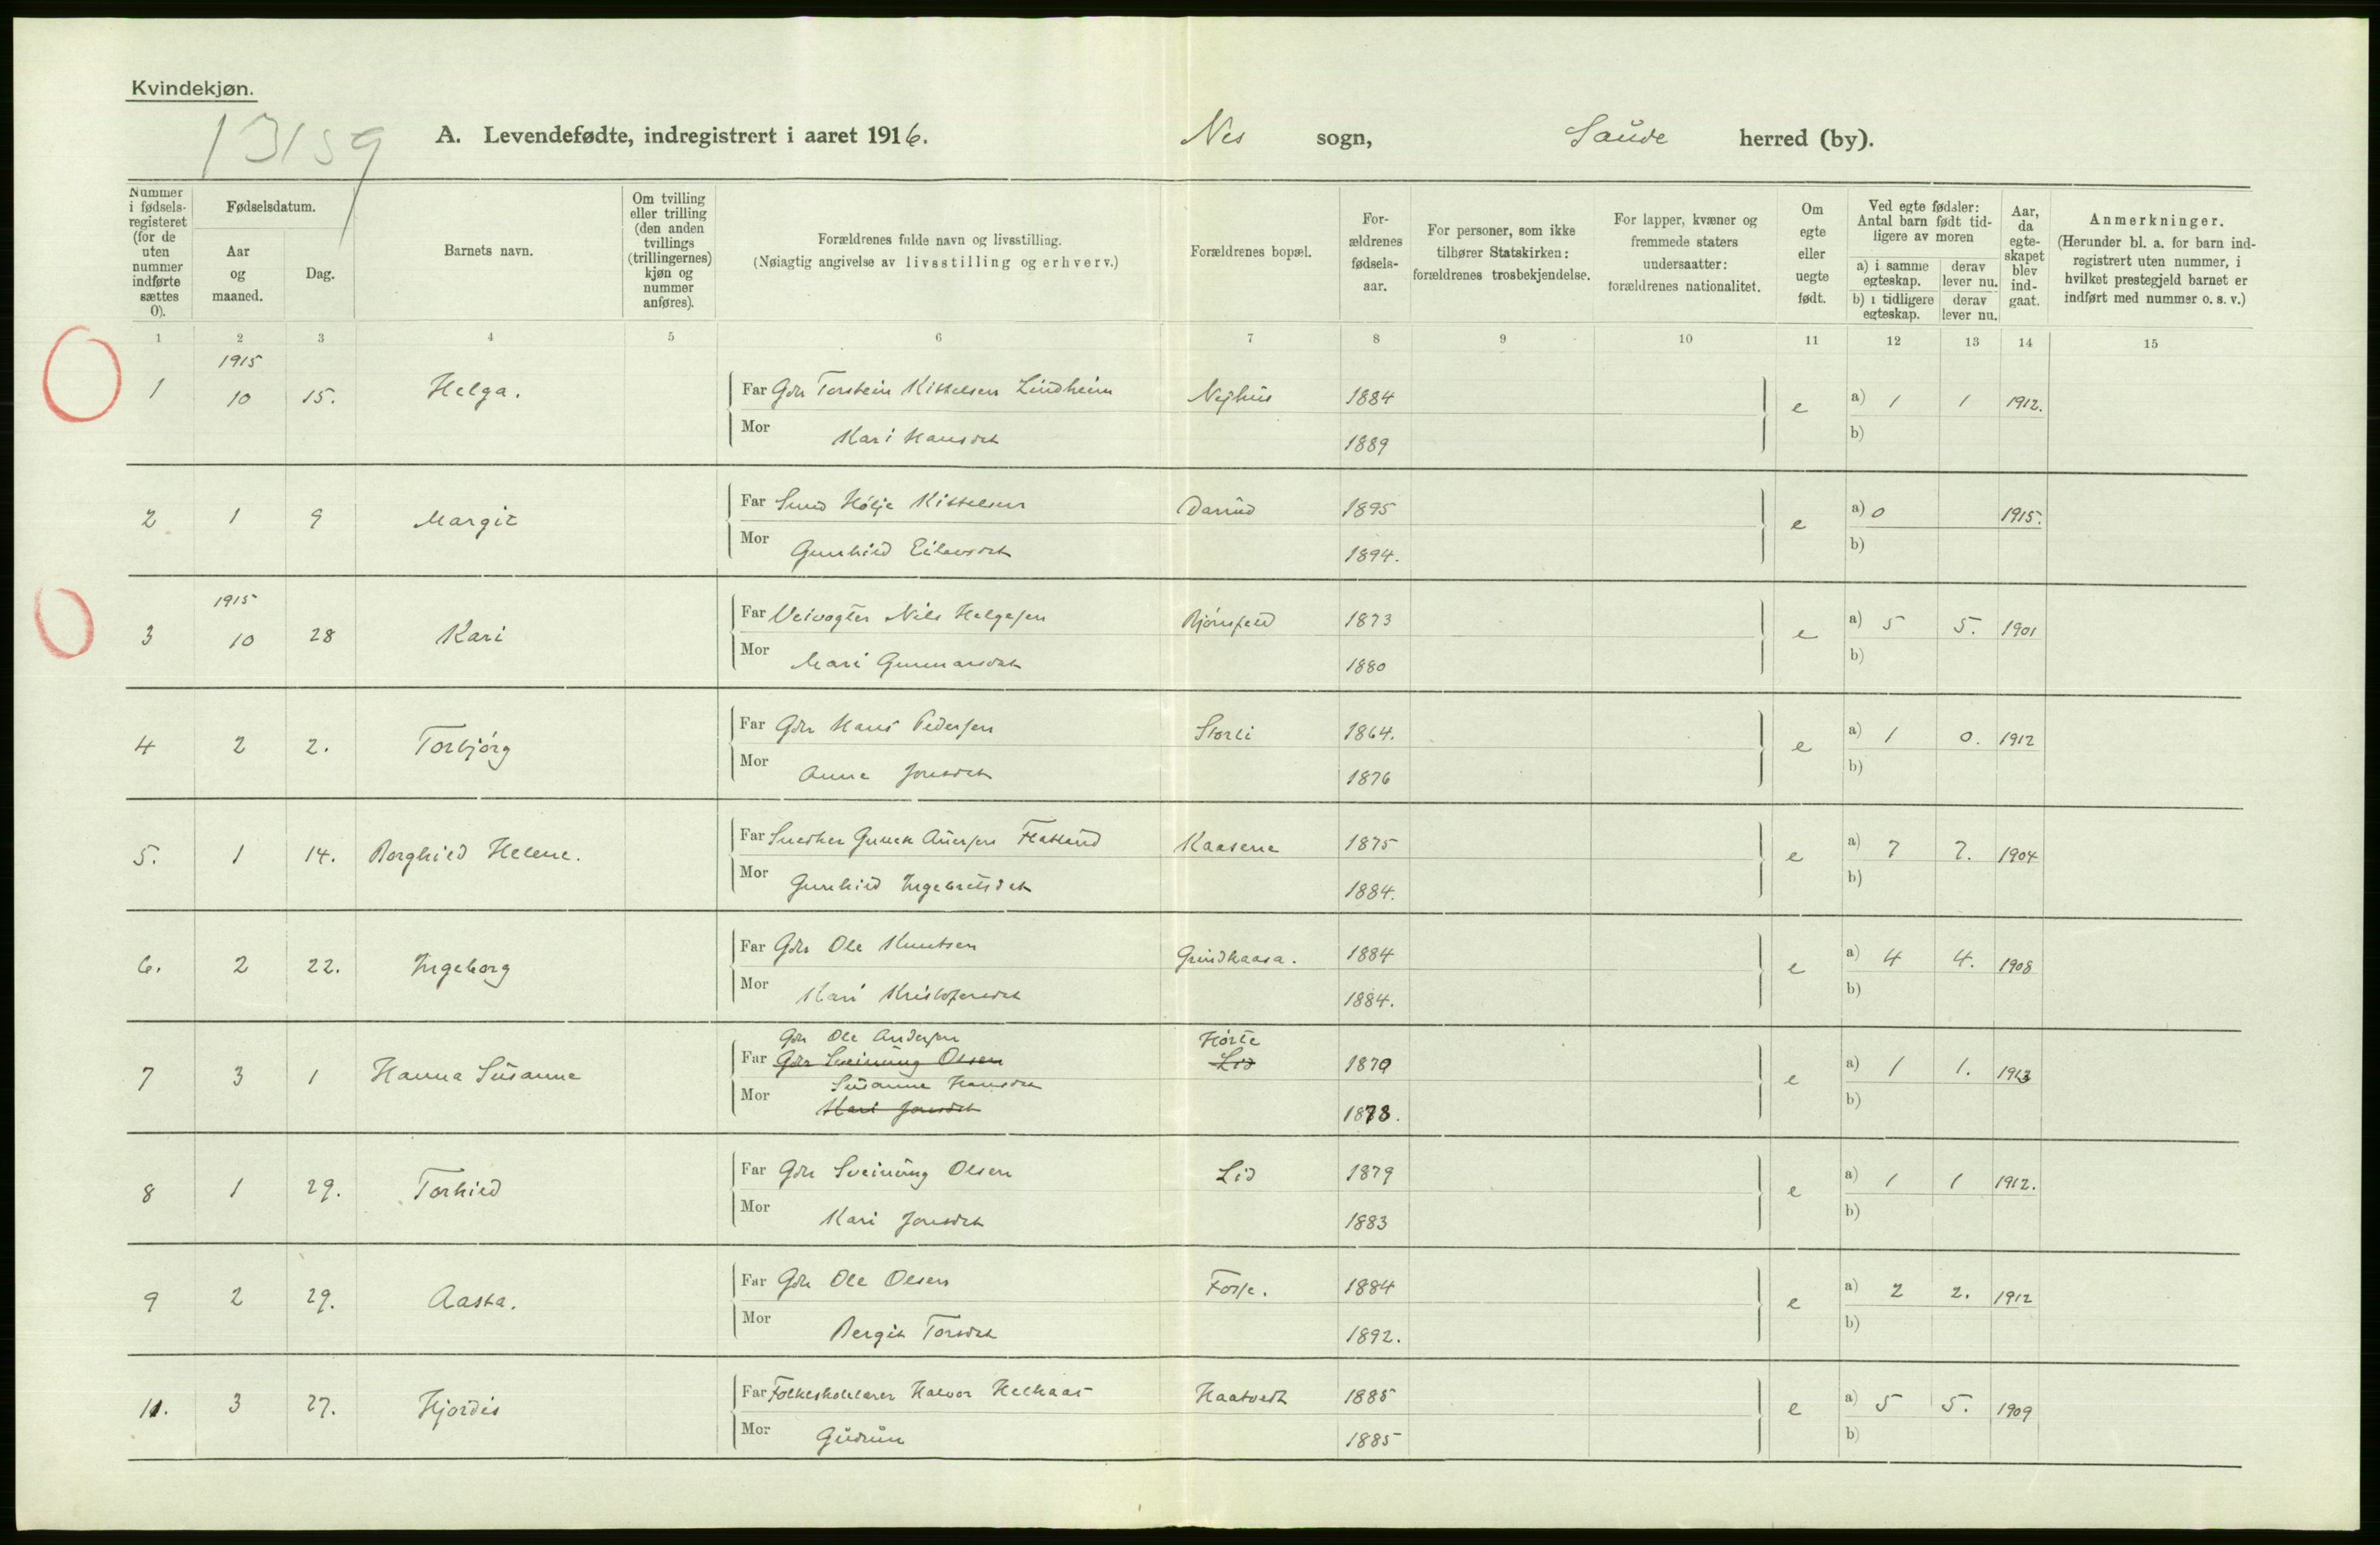 Kvindekjøn.
13159
A. Levendefødte, indregistrert i aaret 1916. Nes sogn, Saude herred (by).
Nummer i fødselsregisteret (for de uten nummer indførte sættes 0).
Fødselsdatum.
Aar og maaned.
Dag.
Barnets navn.
Om tvilling eller trilling (den anden tvillings (trillingernes) kjøn og nummer anføres).
Forældrenes fulde navn og livsstilling.
(Nøiagtig angivelse av livsstilling og erhverv.)
Forældrenes bopæl.
Forældrenes fødselsaar.
For personer, som ikke tilhører Statskirken: forældrenes trosbekjendelse.
For lapper, kvæner og fremmede staters undersaatter: forældrenes nationalitet.
Om egte eller uegte født.
Ved egte fødsler: Antal barn født tidligere av moren
a) i samme egteskap. derav lever nu.
b) i tidligere egteskap. derav lever nu.
Aar, da egteskapet blev indgaat.
Anmerkninger.
(Herunder bl. a. for barn indregistrert uten nummer, i hvilket prestegjeld barnet er indført med nummer o. s. v.)
1 2 3 4 5 6 7 8 9 10 11 12 13 14 15
1915
1 10 15. Helga. Far Gbr Torstein Kittelsen Lindheim Nejhus 1884 e a) 1 1 1912.
Mor Kari Hansdat 1889 b)
2 1 9 Margit Far Smed Hølje Kittelsen Darrud 1895 e a) 0 1915.
Mor Gunhild Eilevsdat 1894. b)
1915
3 10 28 Kari Far Veivogter Nils Helgesen Bjørnfeld 1873 e a) 5 5. 1901
Mor Mari Gunnarsdat 1880 b)
4 2 2. Torbjørg Far Gbr Hans Pedersen Storli 1864. e a) 1 0. 1912
Mor Anne Jonsdat 1876 b)
5. 1 14. Borghild Helene. Far Snedker Gunnar Flatland Kaasene 1875 e a) 7 7. 1904
Mor Gunhild Ingebretsdat 1884. b)
6. 2 22. Ingeborg Far Gbr Ole Knutsen Grindkaasa. 1884 e a) 4 4. 1908
Mor Kari Kristofersdat 1884. b)
Gbr Ole Andersen Hørte
7 3 1 Hanna Susanne Far Gbr Sveinung Olsen Lid 1870 e a) 1 1. 1913
Susanne Hansdat
Mor Kari Jonsdat 1878. b)
8 1 29. Torhild Far Gbr Sveinung Olsen Lid 1879 e a) 1 1 1912.
Mor Kari Jonsdat 1883 b)
9 2 29. Aasta. Far Gbr Ole Olsen Forse. 1884 e a) 2 2. 1912
Mor Bergit Torsdat 1892. b)
11. 3 27. Hjørdis Far Folkeskolelærer Halvor Helkaas Haatvedt 1885 e a) 5 5. 1909
Mor Gudrun 1885 b)